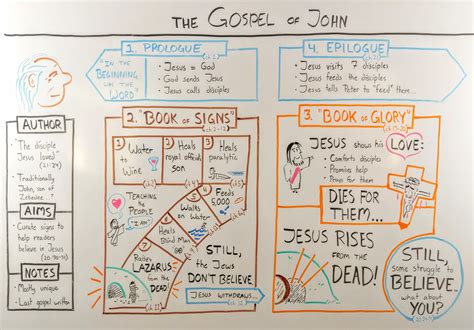 THE GOSPEL OF JOHN
"IN THE
BEGINNING
WAS THE
WORD"
1. PROLOGUE
(ch. 1)
• Jesus = God
• God sends Jesus
• Jesus calls disciples
4. EPILOGUE
• Jesus visits 7 disciples
• Jesus feeds the disciples
• Jesus tells Peter to "feed" them...
AUTHOR
• "The disciple
Jesus loved"
(21:24)
• Traditionally
John, son of
Zebedee
AIMS
• Curate signs to
help readers
believe in Jesus
(20:30-31)
NOTES
• Mostly unique
• Last gospel written
2. "BOOK OF SIGNS"
(ch. 2-12)
1 Water
to
Wine
2 Heals
royal official's
son
3 Heals
paralytic
4 Feeds
5,000
5 Walks on
Water
6 Heals
Blind Man
7 Raises
LAZARUS
from the
DEAD!
(ch. 11)
TEACHING
PEOPLE
"I AM"
STILL,
the Jews
DON'T BELIEVE.
JESUS WITHDRAWS...
3. "BOOK OF GLORY"
JESUS shows his LOVE:
• Comforts disciples
• Promises help
• Prays for them
DIES FOR
THEM...
JESUS RISES
FROM THE
DEAD!
STILL,
some struggle to
BELIEVE.
what about
YOU?